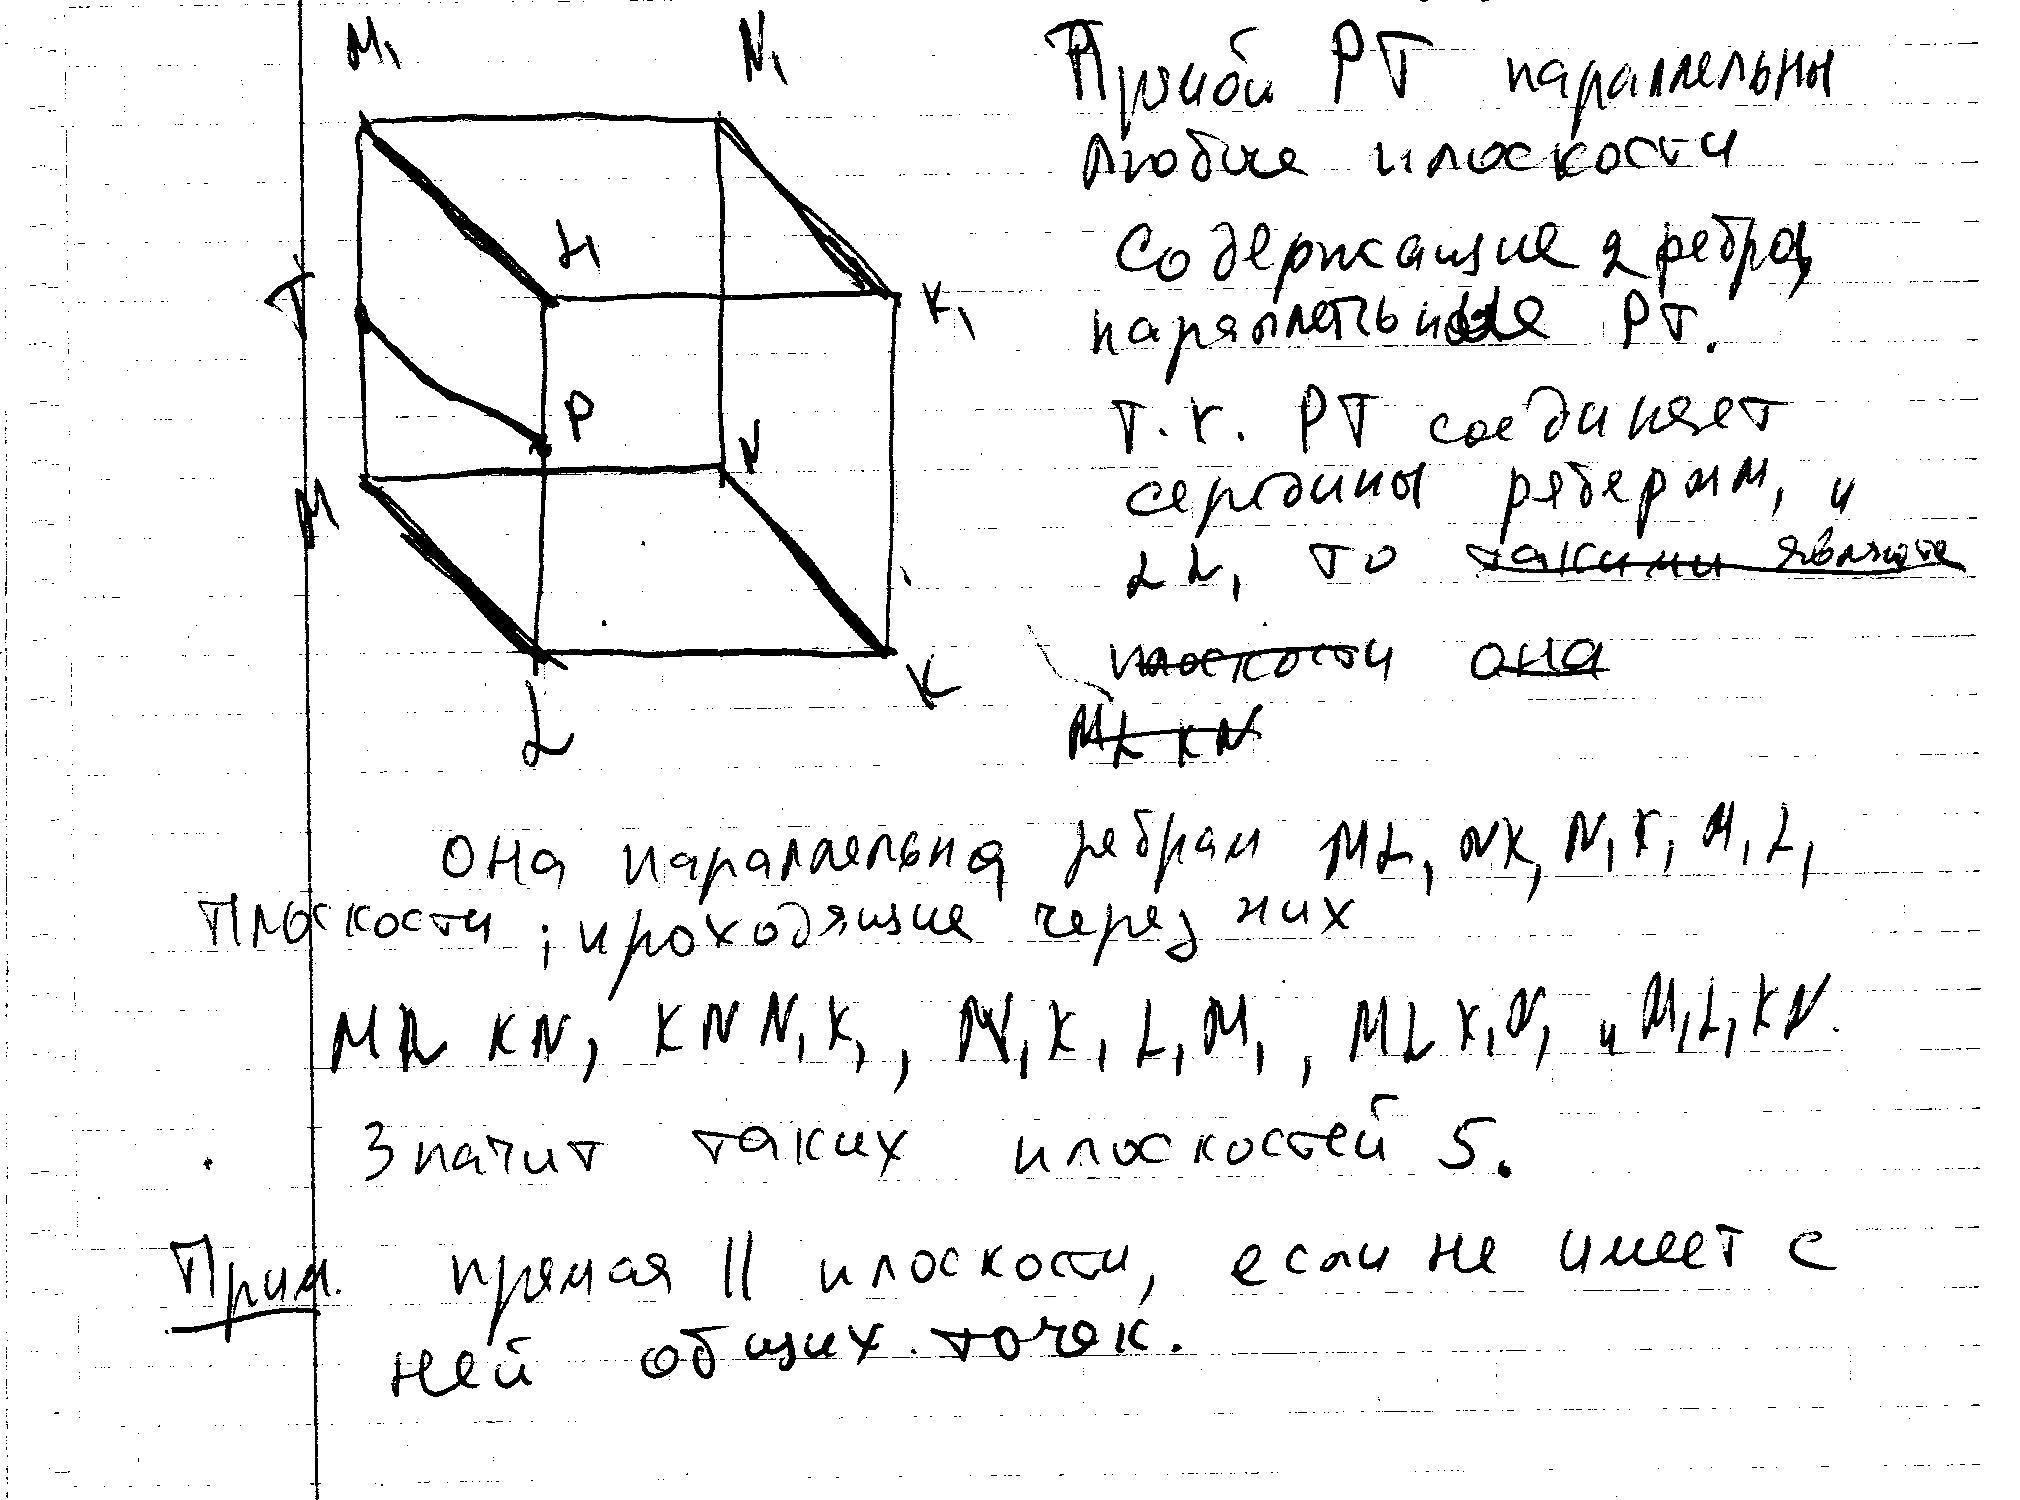 M₁ N₁
Прямой РТ параллельны
любые плоскости
L₁
содержащие 2 ребра,
T K₁
параллельные РТ.
P
т.к. РТ соединяет
N
середины
M
LL₁ то такими являются
плоскости она
L K
MLKN
Она параллельна ребрам ML, NK, N₁K₁ M₁L₁
Плоскости, проходящие через них
ML KN, KNN₁K₁, N₁K₁L₁M₁, MLK₁N₁ и M₁L₁KN.
Значит таких плоскостей 5.
Прим. прямая || плоскости, если не имеет с
ней общих точек.